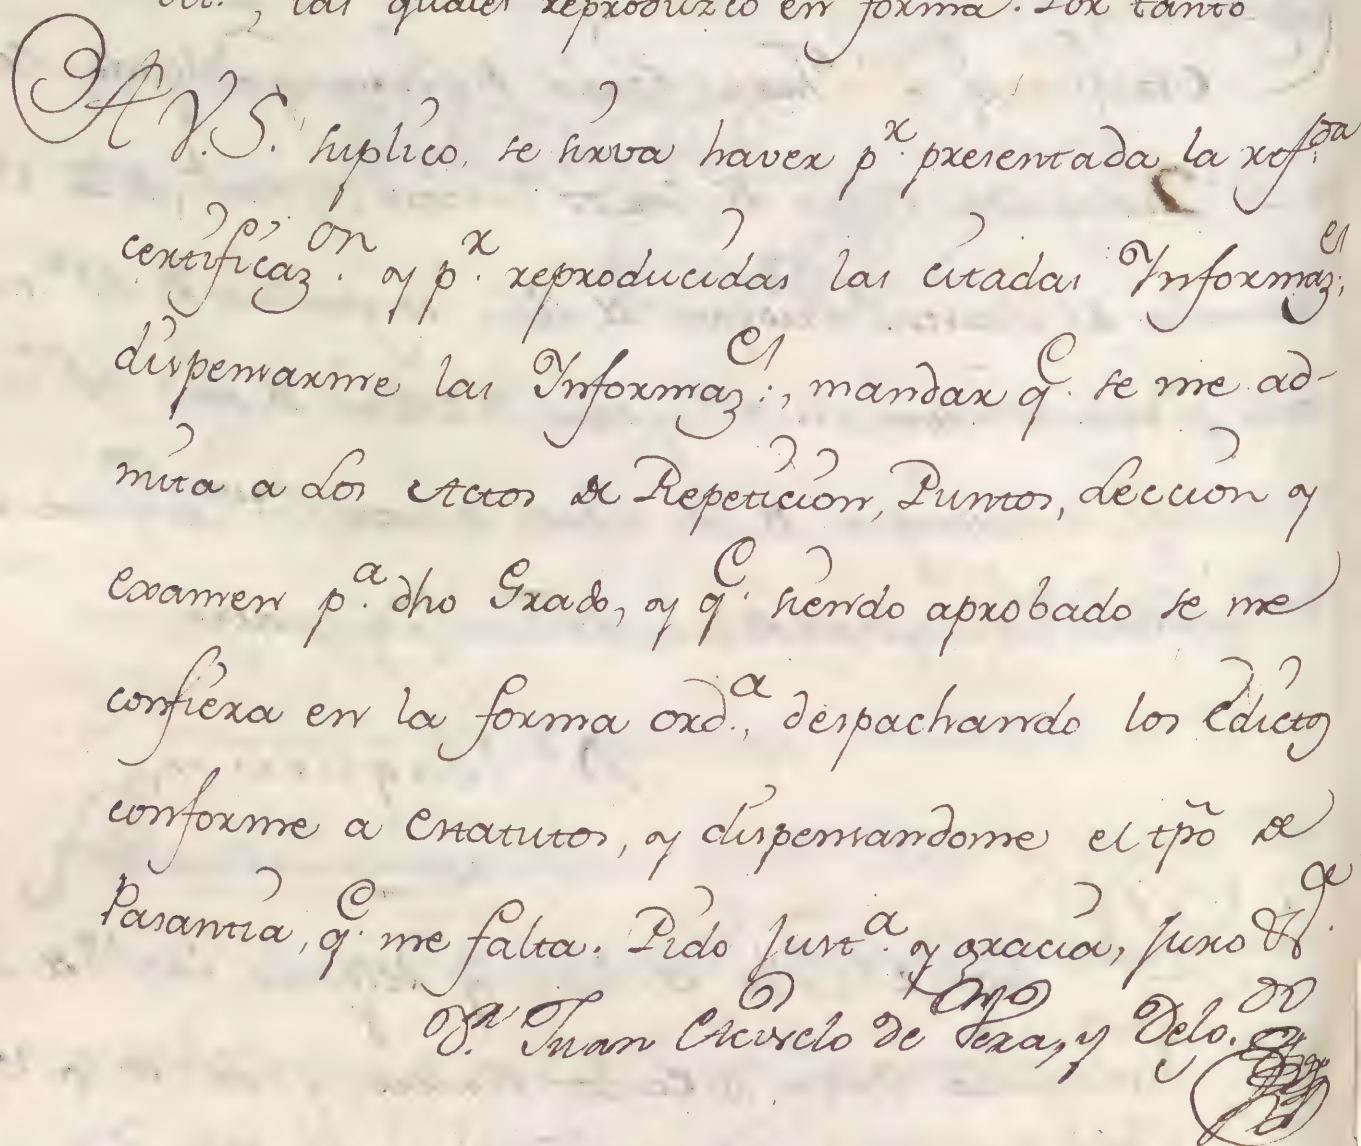 las quales reproduzco en forma. Por tanto
A V.S. suplico, se sirva haver p.r presentada la ref.da
certificaz.on y p.r reproducidas las citadas Informaz.es
dispensarme las Informaz.es, mandar q.e se me ad-
mita a Los Actos de Repeticion, Puntos, Leccion y
examen p.a dho Grado, y q.e siendo aprobado se me
confiera en la forma ord.a, despachando los Edictos
conforme a Estatutos, y dispensandome el tpõ de
Pasantia, q.e me falta. Pido Just.a y gracia, juro &.a
D.n Juan Acisclo de Vera, y Delg.do